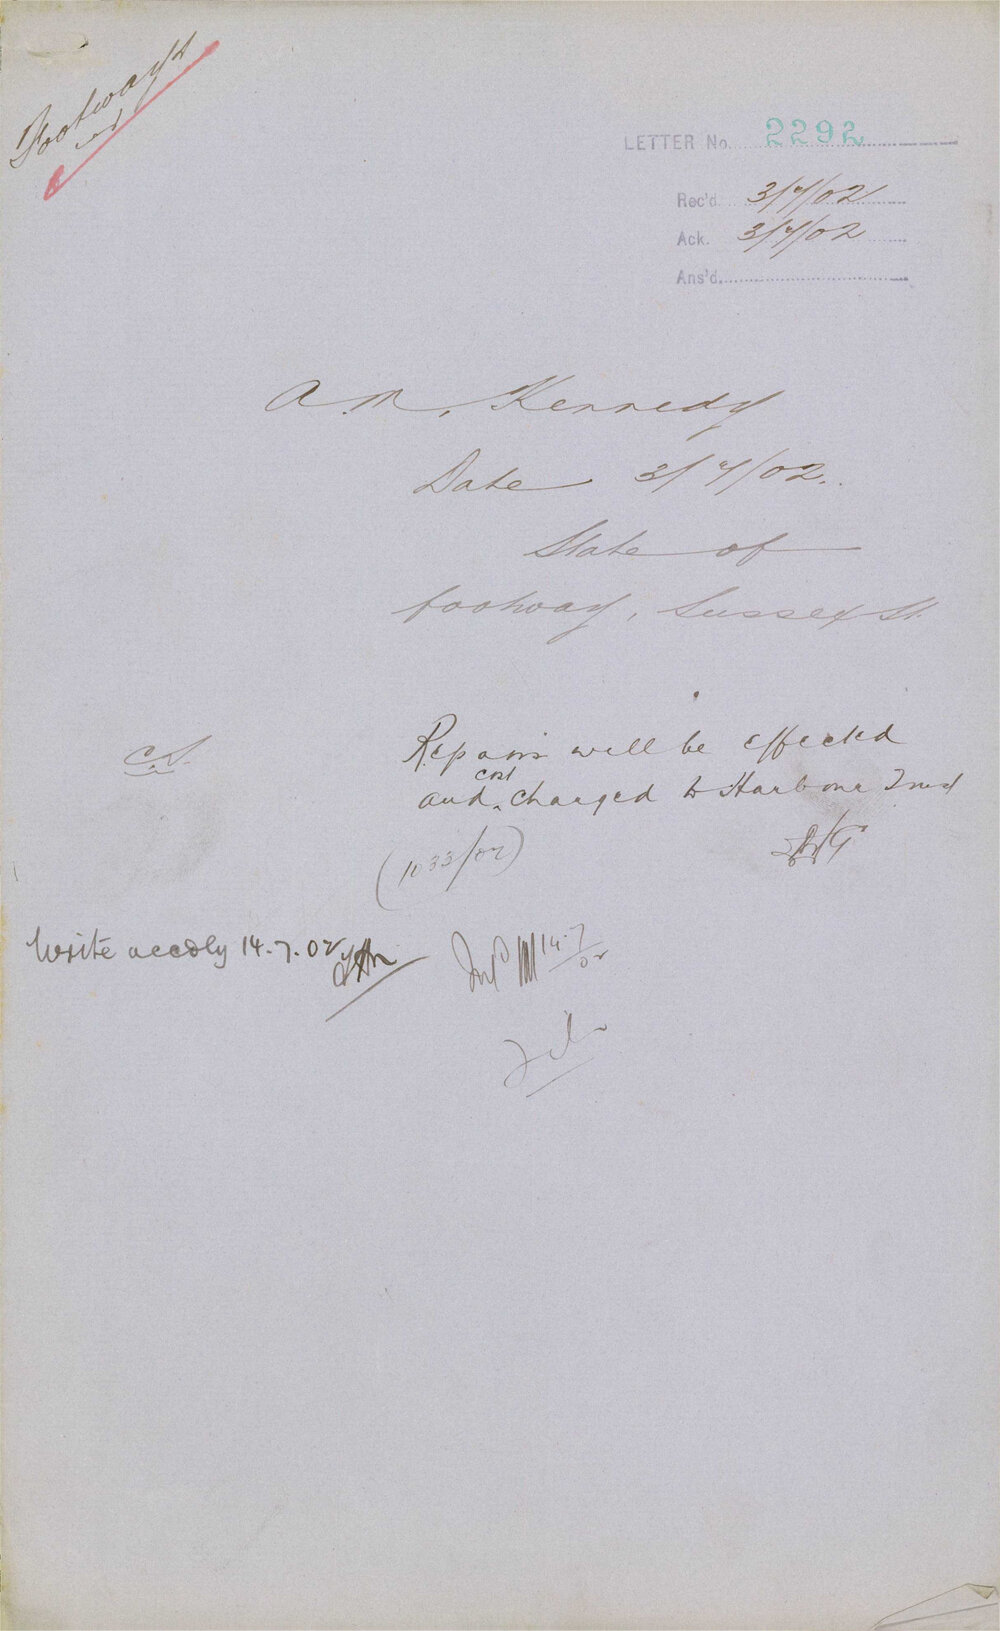 Footways
LETTER No. 2292
Rec'd. 3/7/02
Ack. 3/7/02
Ans'd.
A. M. Kennedy
Date 3/7/02.
State of
footway, Sussex St.
C.S.
Repairs will be effected
cost
and ^ charged to Harbour Trust
(1033/02)
Write accdly 14.7.02
14.7/02
File